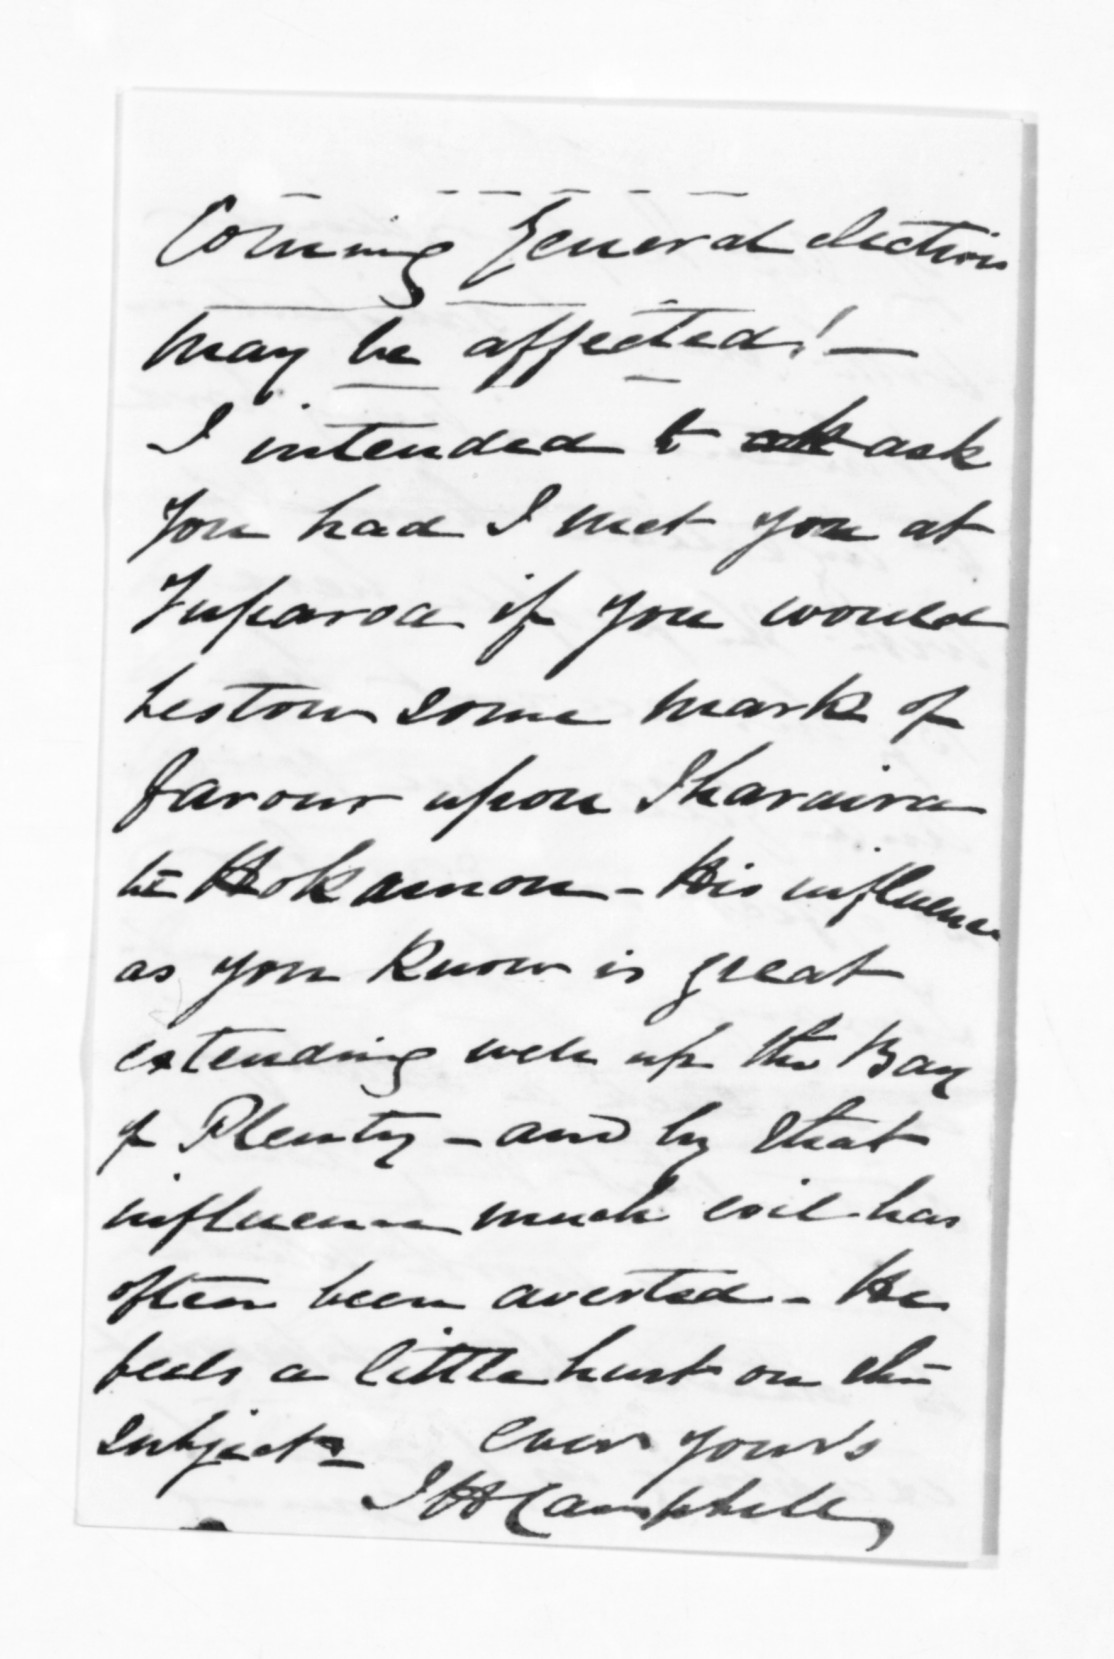 Coming General election
may be affected! —
I intended to ask
you had I met you at
Tuparoa if you would
bestow some mark of
favour upon Iharaira
te Houkamau - His influence
as you know is great
extending well up the Bay
of Plenty - and by that
influence much evil has
often been averted - He
feels a little hurt on the
subject - ever yours
Campbell